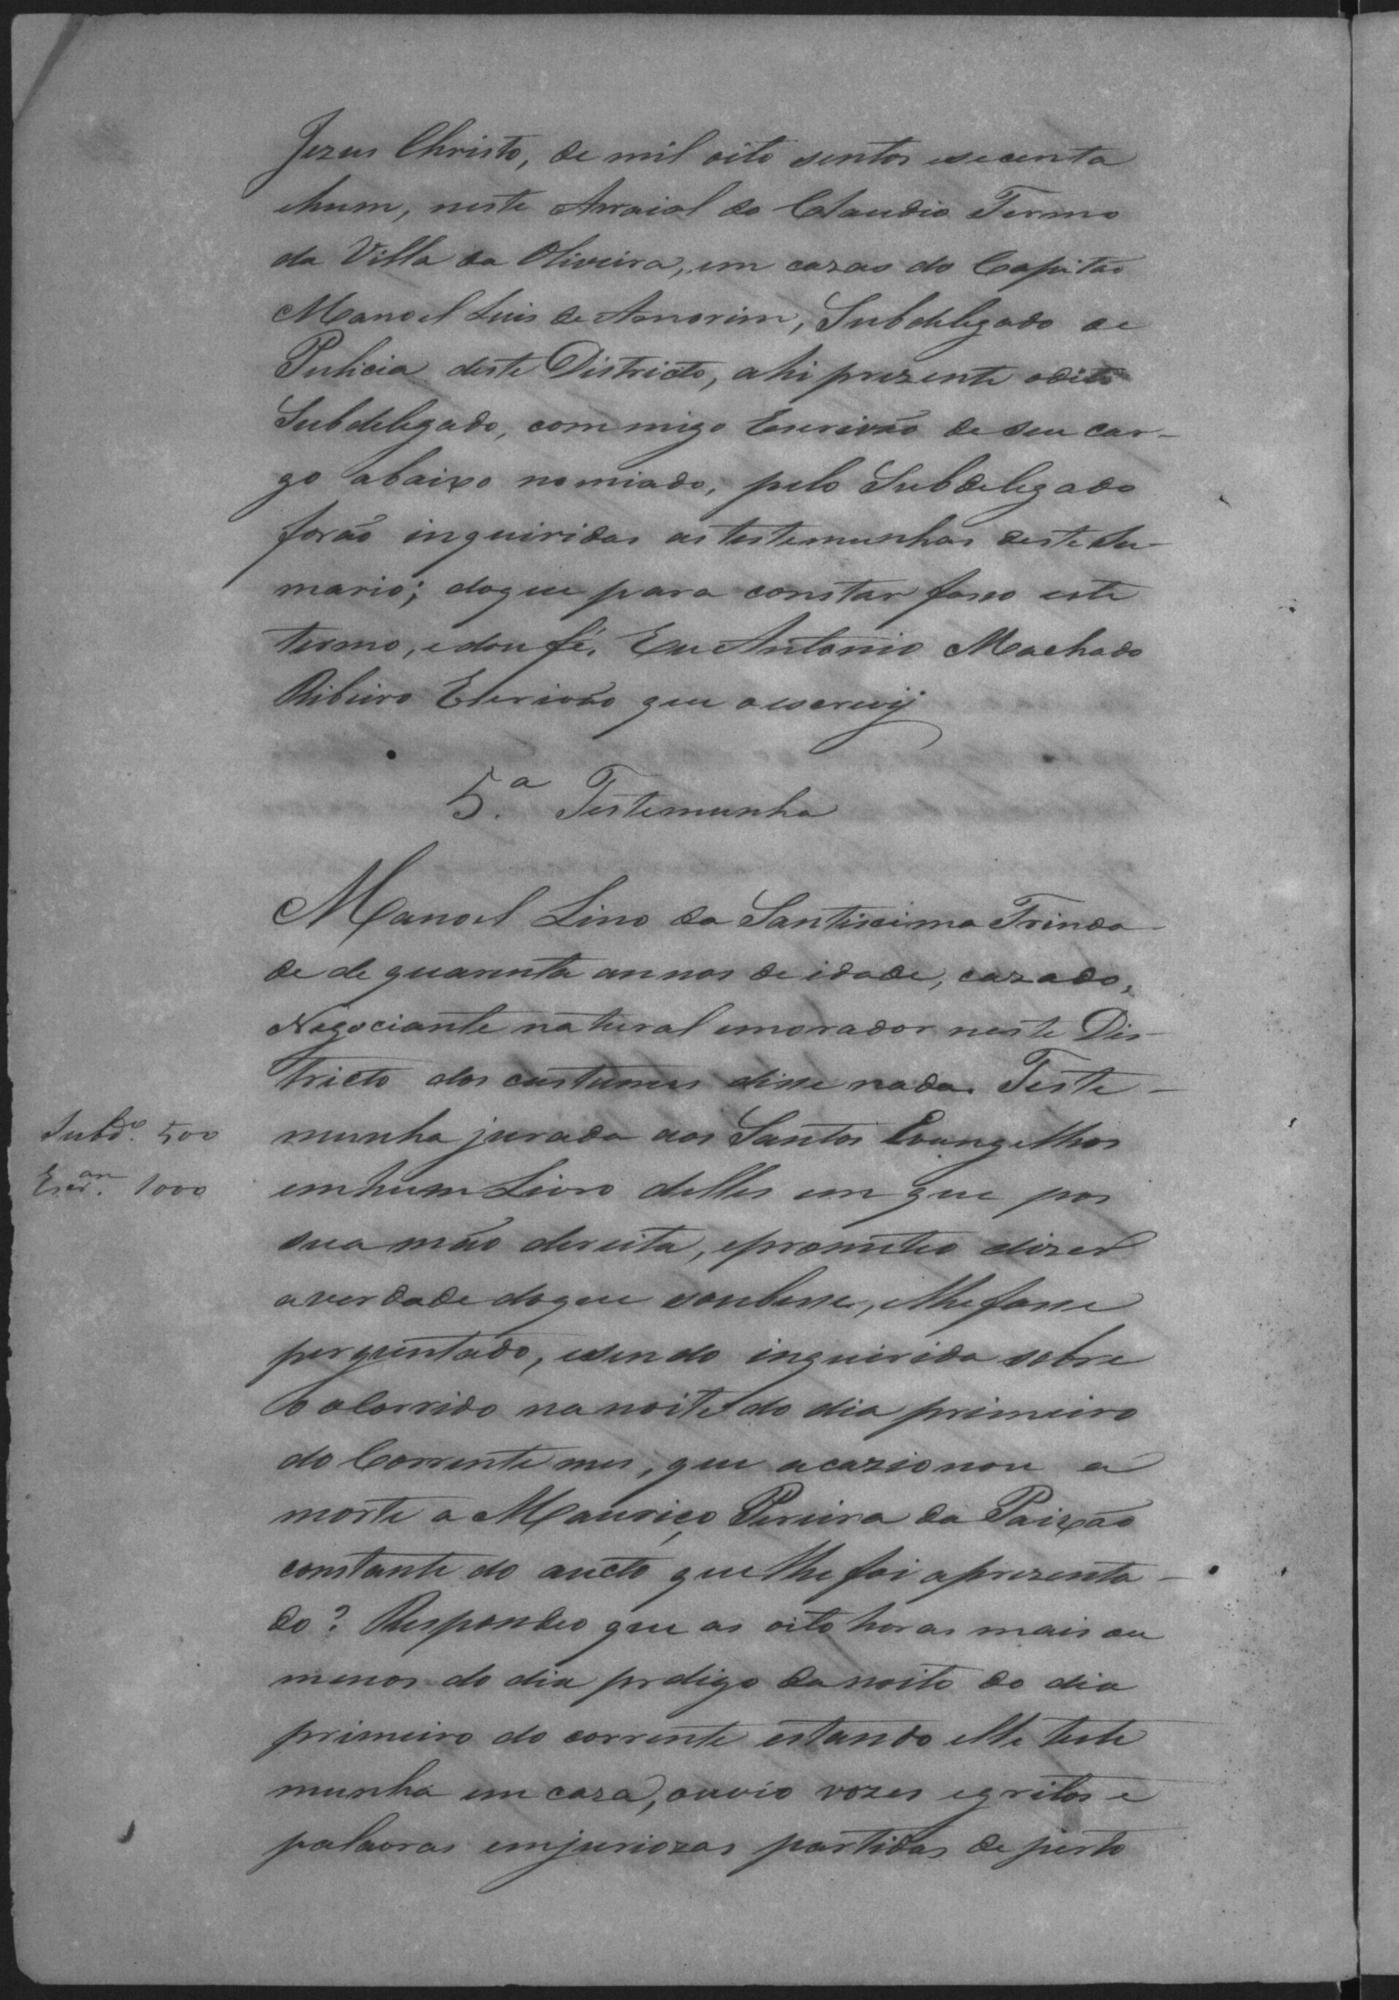 Jezus Christo, de mil oito sentos esecenta
ehum, neste Arraial do Claudio Termo
da Villa da Oliveira, em cazas do Capitão
Manoel Luis de Amorim, Subdelegado de
Pulicia deste Districto, ahi prezente odito
Subdelegado, com migo Escrivão de seu car-
go abaixo nomiado, pelo Subdelegado
forão inquiridas as testemunhas deste Su-
mario; doque para constar faso este
termo, edou fé. Eu Antonio Machado
Ribeiro Escrivão que oescrevy
5.a Testemunha
Manoel Lino da Santissima Trinda
de de quarenta annos de idade, cazado,
Negociante natural emorador neste Dis-
tricto dos custumes disse nada. Teste-
munha jurada aos Santos Evangelhos
Subd.o 500
Escr.am 1000
emhum Livro delles em que pos
sua mão dereita, eprometeo dizer
averdade doque soubesse, elhe fosse
perguntado, esendo inquirida sobre
o olorrido na noite do dia primeiro
do Corrente mes, que acazionou a
morte a Mauriço Pereira da Paixão
constante do aucto que lhe foi aprezenta-
do? Respondeo que as oito horas mais ou
menos do dia prdigo da noite do dia
primeiro do corrente estando elle teste
munha em caza, ouvio vozes egritos e
palavras emjuriozas partidas de perto